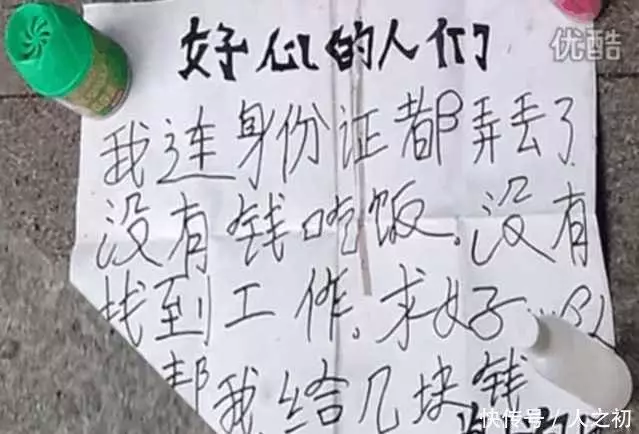 优酷
好心的人们
我连身份证都弄丢了
没有钱吃饭。没有
找到工作。求好
帮我给几块钱
快传号/人之初